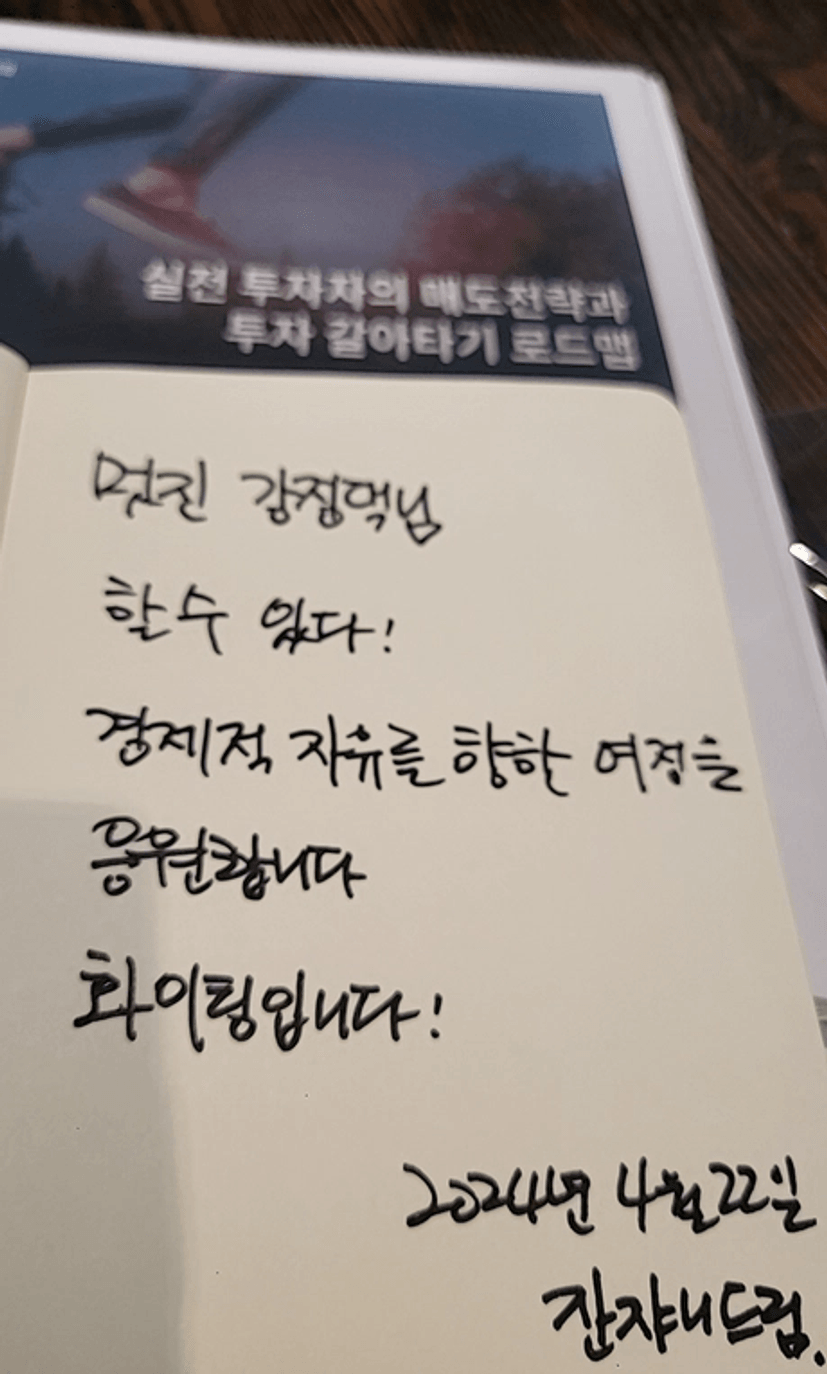 실전 투자자의 매도전략과
투자 갈아타기 로드맵
멋진 강정먹님
할수 있다!
경제적 자유를 향한 여정을
응원합니다
화이팅입니다!
2024년 4월 22일
잔쟈니드림.